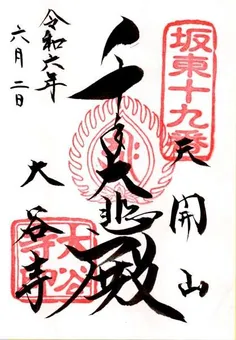 坂東十九番
天開山
千手大悲殿
大谷寺
令和六年
六月二日
大谷寺印